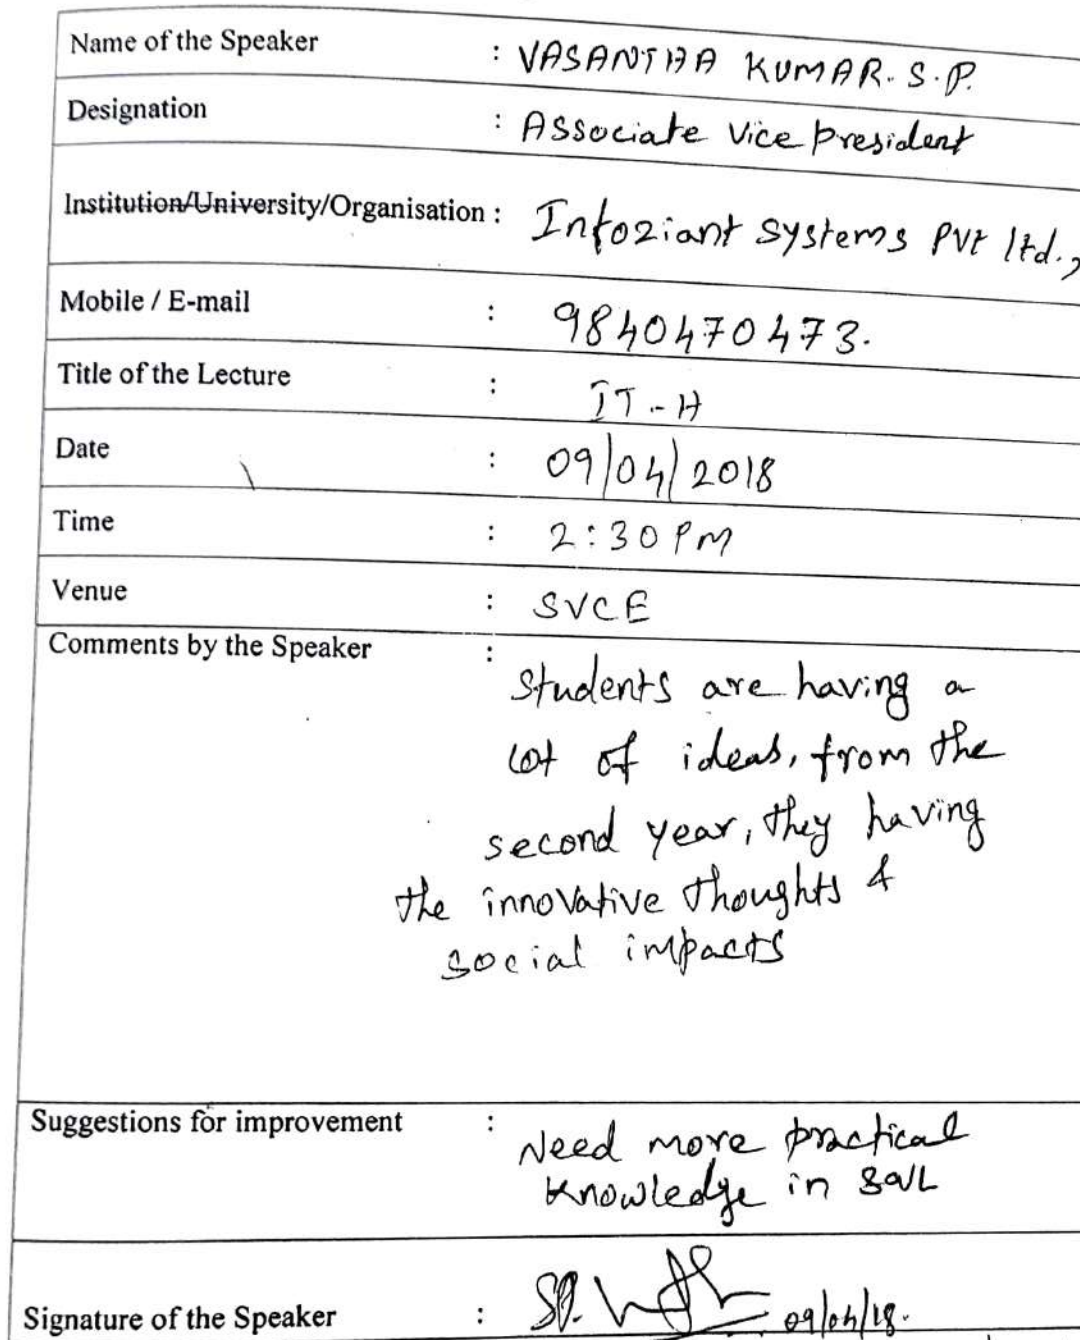 Name of the Speaker : VASANTHA KUMAR. S.P.
Designation : Associate Vice president
Institution/University/Organisation : Infoziant Systems Pvt ltd.,
Mobile / E-mail : 9840470473.
Title of the Lecture : IT - H
Date : 09/04/2018
Time : 2:30 PM
Venue : SVCE
Comments by the Speaker :
Students are having a
lot of ideas, from the
second year, they having
the innovative thoughts &
social impacts
Suggestions for improvement :
Need more practical
Knowledge in
Signature of the Speaker : SP. 09/04/18.